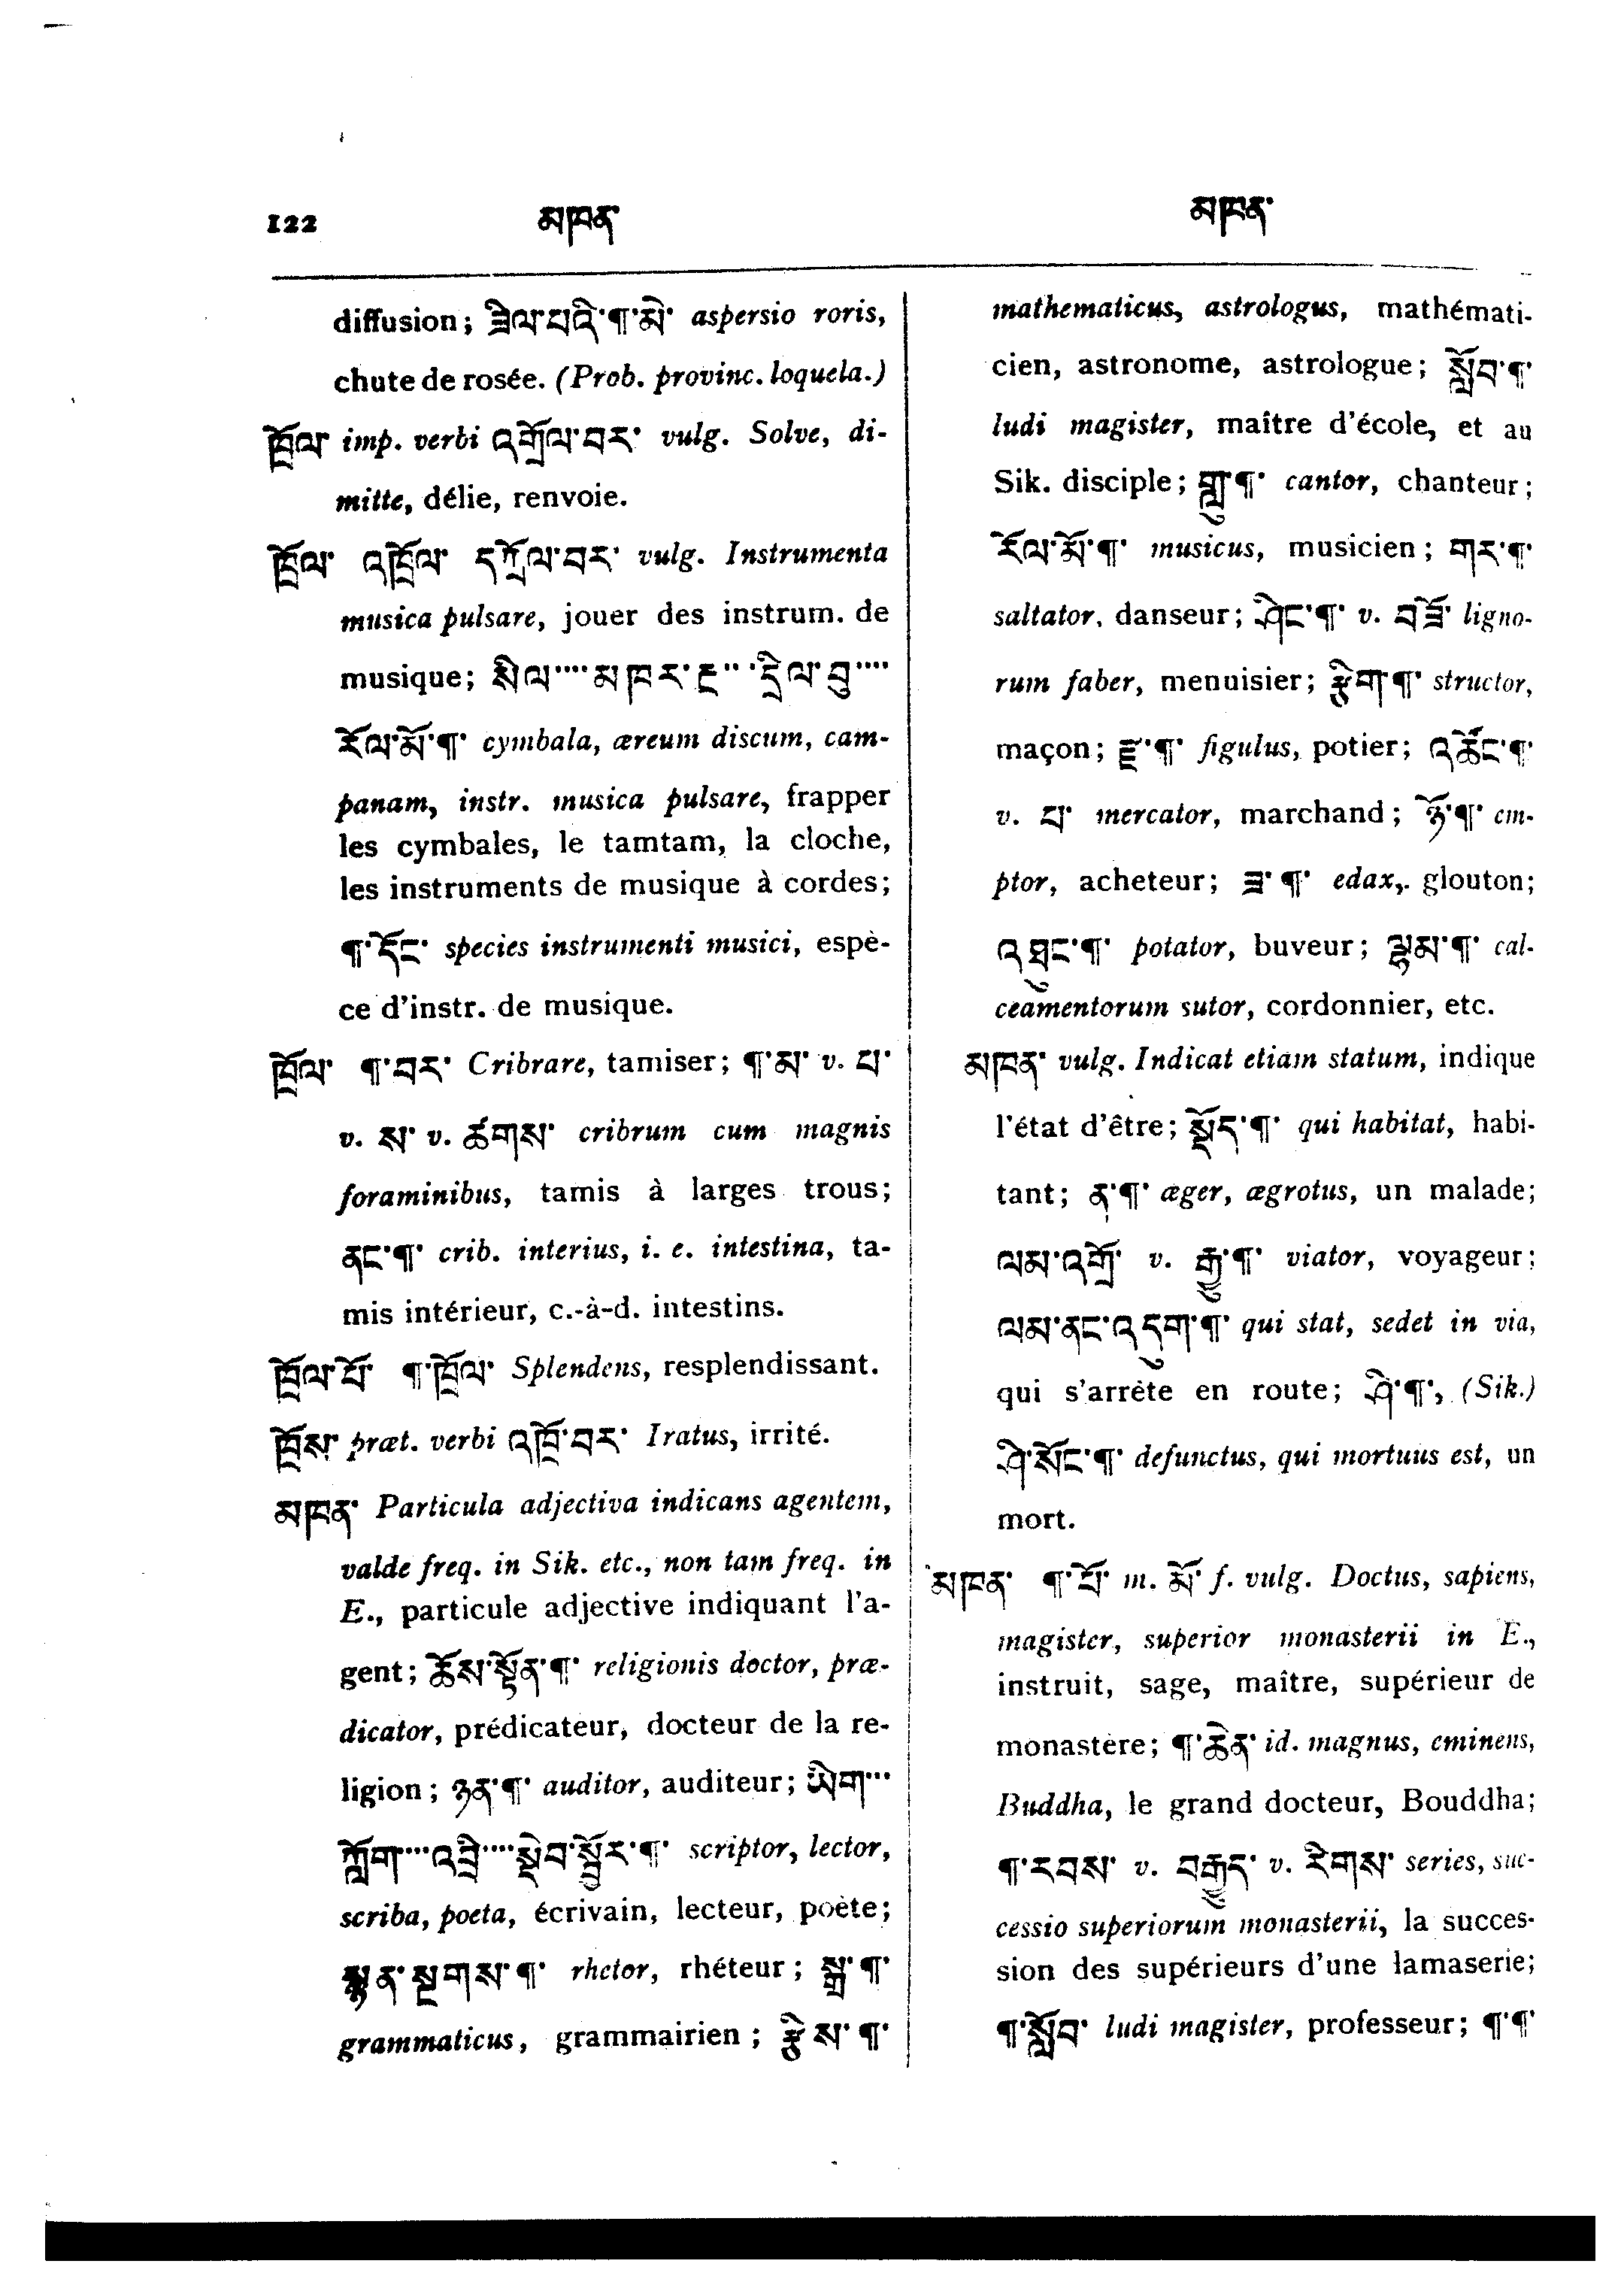 122 མཁན་ མཁན་
diffusion; ཟིལ་པའི་¶་མེ་ aspersio roris,
chute de rosée. (Prob. provinc. loquela.)
ཁྲོལ་ imp. verbi འགྲོལ་བར་ vulg. Solve, di-
mitte, délie, renvoie.
ཁྲོལ་ འཁྲོལ་ དཀྲོལ་བར་ vulg. Instrumenta
musica pulsare, jouer des instrum. de
musique; སིལ་····མཁར་རྔ་···དྲིལ་བུ་····
རོལ་མོ་¶་ cymbala, æreum discum, cam-
panam, instr. musica pulsare, frapper
les cymbales, le tamtam, la cloche,
les instruments de musique à cordes;
¶་དོང་ species instrumenti musici, espè-
ce d'instr. de musique.
ཁྲོལ་ ¶་བར་ Cribrare, tamiser; ¶་མ་ v. པ་
v. ས་ v. ཚགས་ cribrum cum magnis
foraminibus, tamis à larges trous;
ནང་¶་ crib. interius, i. e. intestina, ta-
mis intérieur, c.-à-d. intestins.
ཁྲོལ་པོ་ ¶་ཁྲོལ་ Splendens, resplendissant.
ཁྲོས་ præt. verbi འཁྲོ་བར་ Iratus, irrité.
མཁན་ Particula adjectiva indicans agentem,
valde freq. in Sik. etc., non tam freq. in
E., particule adjective indiquant l'a-
gent; ཆོས་སྟོན་¶་ religionis doctor, præ-
dicator, prédicateur, docteur de la re-
ligion; ཉན་¶་ auditor, auditeur; ཡིག་···
ཀློག་····འབྲི་····སྡེབ་སྦྱོར་¶་ scriptor, lector,
scriba, poeta, écrivain, lecteur, poète;
སྙན་སྔགས་¶་ rhetor, rhéteur; སྒྲ་¶་
grammaticus, grammairien; རྩིས་¶་
mathematicus, astrologus, mathémati-
cien, astronome, astrologue; སློབ་¶་
ludi magister, maître d'école, et au
Sik. disciple; གླུ་¶་ cantor, chanteur;
རོལ་མོ་¶་ musicus, musicien; གར་¶་
saltator, danseur; ཤིང་¶་ v. བཟོ་ ligno-
rum faber, menuisier; རྩིག་¶་ structor,
maçon; རྫ་¶་ figulus, potier; འཚོང་¶་
v. པ་ mercator, marchand; ཉོ་¶་ em-
ptor, acheteur; ཟ་¶་ edax, glouton;
འཐུང་¶་ potator, buveur; ལྷམ་¶་ cal-
ceamentorum sutor, cordonnier, etc.
མཁན་ vulg. Indicat etiam statum, indique
l'état d'être; སྡོད་¶་ qui habitat, habi-
tant; ན་¶་ æger, ægrotus, un malade;
ལམ་འགྲོ་ v. རྒྱུ་¶་ viator, voyageur;
ལམ་ནང་འདུག་¶་ qui stat, sedet in via,
qui s'arrète en route; ཤི་¶་, (Sik.)
ཤི་སོང་¶་ defunctus, qui mortuus est, un
mort.
མཁན་ ¶་པོ་ m. མོ་ f. vulg. Doctus, sapiens,
magister, superior monasterii in E.,
instruit, sage, maître, supérieur de
monastère; ¶་ཆེན་ id. magnus, eminens,
Buddha, le grand docteur, Bouddha;
¶་རབས་ v. བརྒྱུད་ v. རིགས་ series, suc-
cessio superiorum monasterii, la succes-
sion des supérieurs d'une lamaserie;
¶་སློབ་ ludi magister, professeur; ¶་¶་